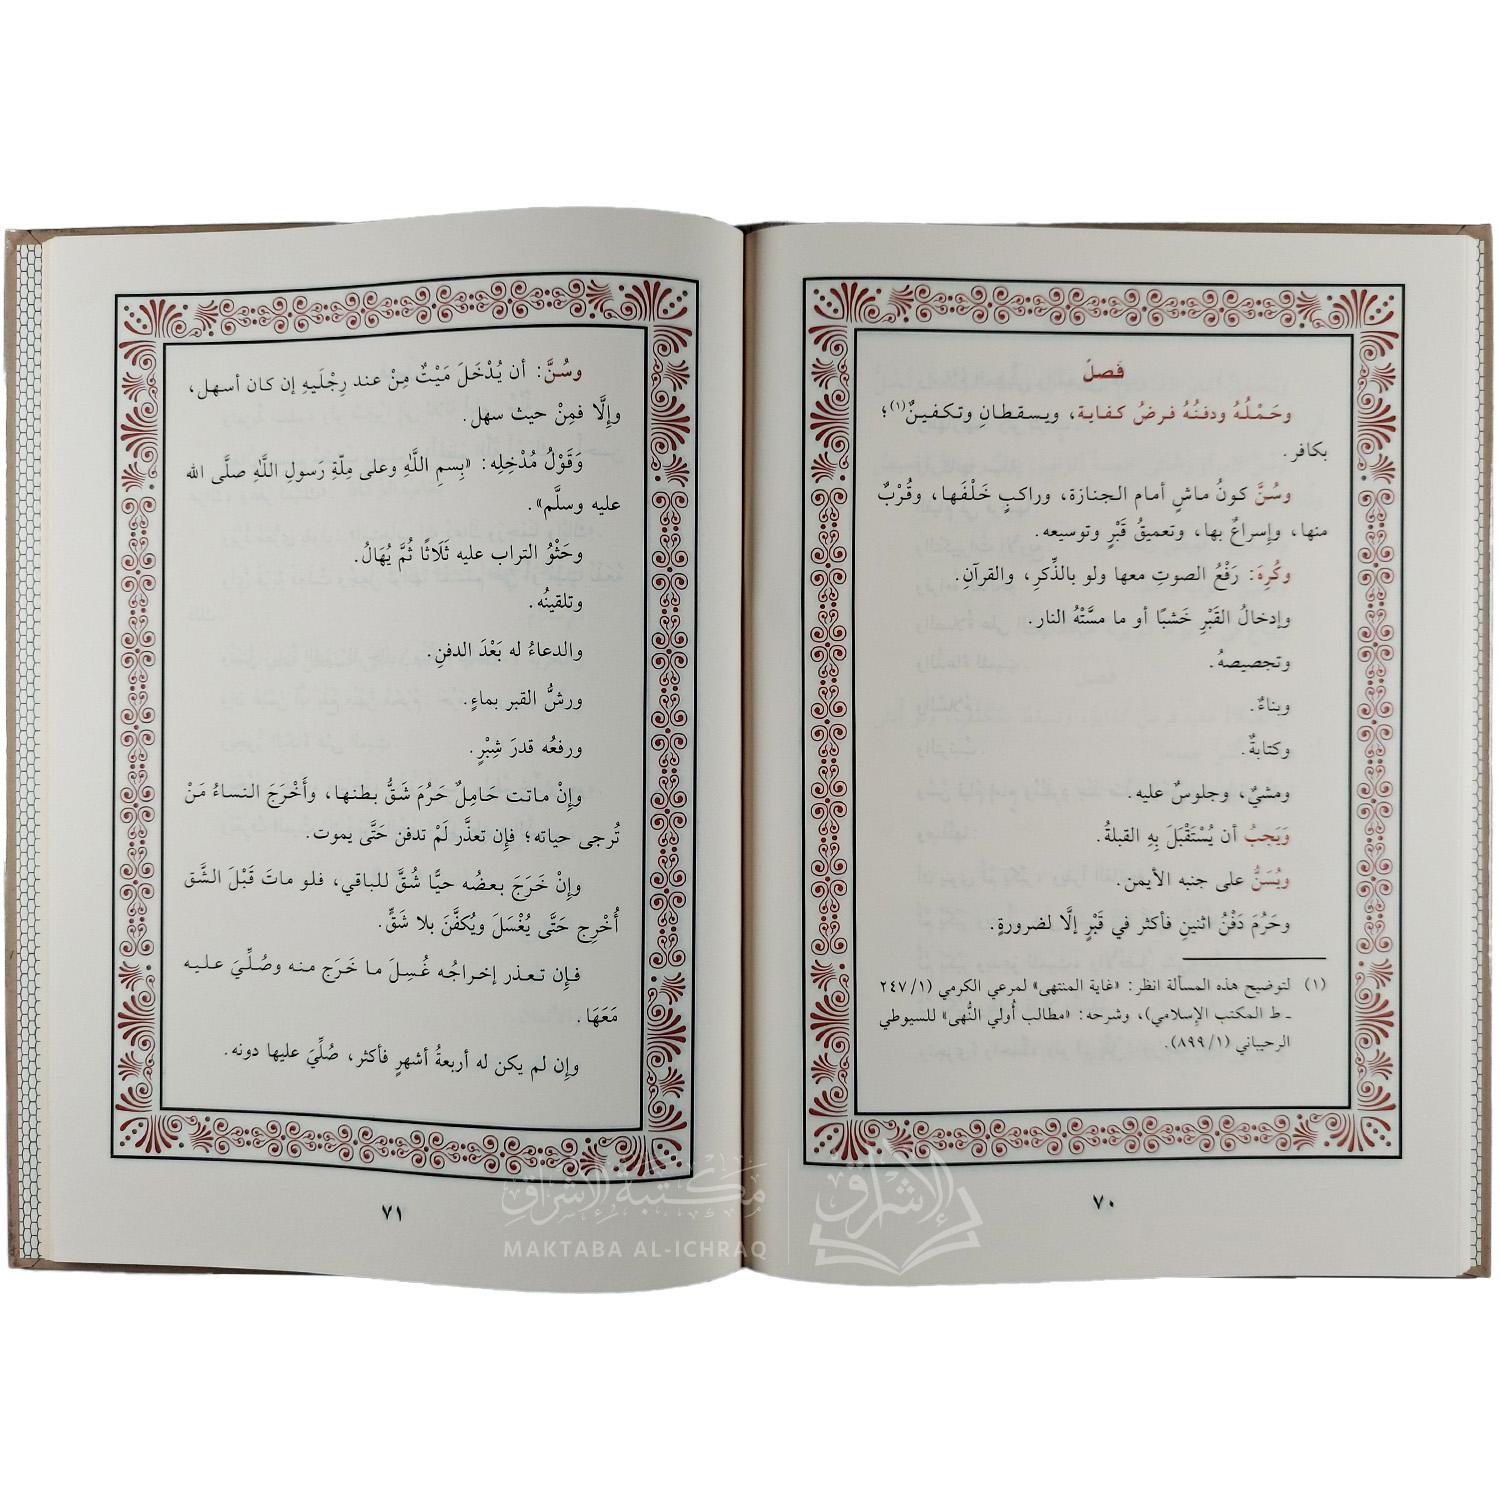 فَصلٌ
وحَمْلُهُ ودفنُهُ فرضُ كفاية، ويسقطانِ وتكفينٌ(١)؛
بكافر.
وسُنَّ كونُ ماشٍ أمام الجنازة، وراكبٍ خَلْفَها، وقُرْبٌ
منها، وإسراعٌ بها، وتعميقُ قَبْرٍ وتوسيعه.
وكُرِهَ: رَفْعُ الصوتِ معها ولو بالذِّكرِ، والقرآنِ.
وإدخالُ القَبْرِ خَشبًا أو ما مسَّتْهُ النار.
وتجصيصهُ.
وبناءٌ.
وكتابةٌ.
ومشيٌ، وجلوسٌ عليه.
ويَجبُ أن يُسْتَقْبَلَ بِهِ القبلةُ.
ويُسَنُّ على جنبه الأيمن.
وحَرُمَ دَفْنُ اثنينِ فأكثر في قَبْرٍ إلَّا لضرورةٍ.
(١) لتوضيح هذه المسألة انظر: «غاية المنتهى» لمرعي الكرمي (٢٤٧/١
ـ ط المكتب الإسلامي)، وشرحه: «مطالب أُولي النُّهى» للسيوطي
الرحيباني (٨٩٩/١).
٧٠
وسُنَّ: أن يُدْخَلَ مَيْتٌ مِنْ عند رِجْلَيهِ إن كان أسهل،
وإلَّا فمِنْ حيث سهل.
وَقَوْلُ مُدْخِلِه: «بِسمِ اللَّهِ وعلى مِلّةِ رَسولِ اللَّهِ صلَّى الله
عليه وسلَّم».
وحَثْوُ التراب عليه ثَلَاثًا ثُمَّ يُهَالُ.
وتلقينُه.
والدعاءُ له بَعْدَ الدفنِ.
ورشُّ القبر بماءٍ.
ورفعُه قدرَ شِبْرٍ.
وإنْ ماتت حَامِلٌ حَرُمَ شَقُّ بطنها، وأَخْرَجَ النساءُ مَنْ
تُرجى حياته؛ فإن تعذَّر لَمْ تدفن حَتَّى يموت.
وإنْ خَرَجَ بعضُه حيًّا شُقَّ للباقي، فلو ماتَ قَبْلَ الشَّق
أُخْرِج حَتَّى يُغْسَلَ ويُكفَّنَ بلا شَقٍّ.
فإن تعذر إخراجُه غُسِلَ ما خَرَج منه وصُلِّيَ عليه
مَعَهَا.
وإن لم يكن له أربعةُ أشهرٍ فأكثر، صُلِّيَ عليها دونه.
٧١
مكتبة الإشراق
MAKTABA AL-ICHRAQ
الإشراق